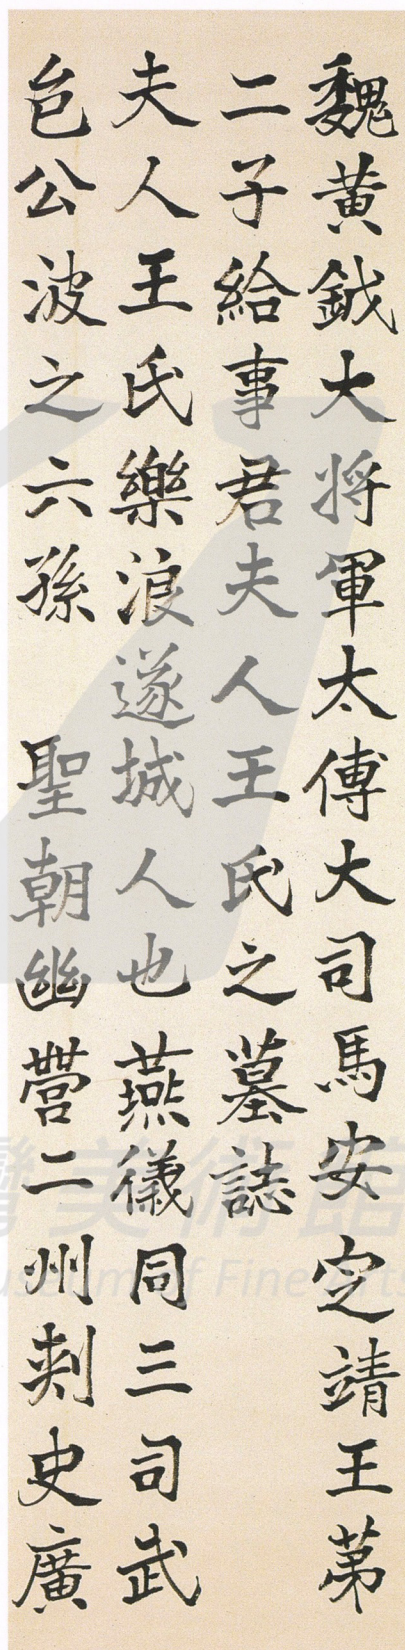 魏黃鉞大將軍太傅大司馬安定靖王苐
二子給事君夫人王氏之墓誌
夫人王氏樂浪遂城人也燕儀同三司武
邑公波之六孫 聖朝幽營二州刺史廣
美術館
Museum of Fine Arts